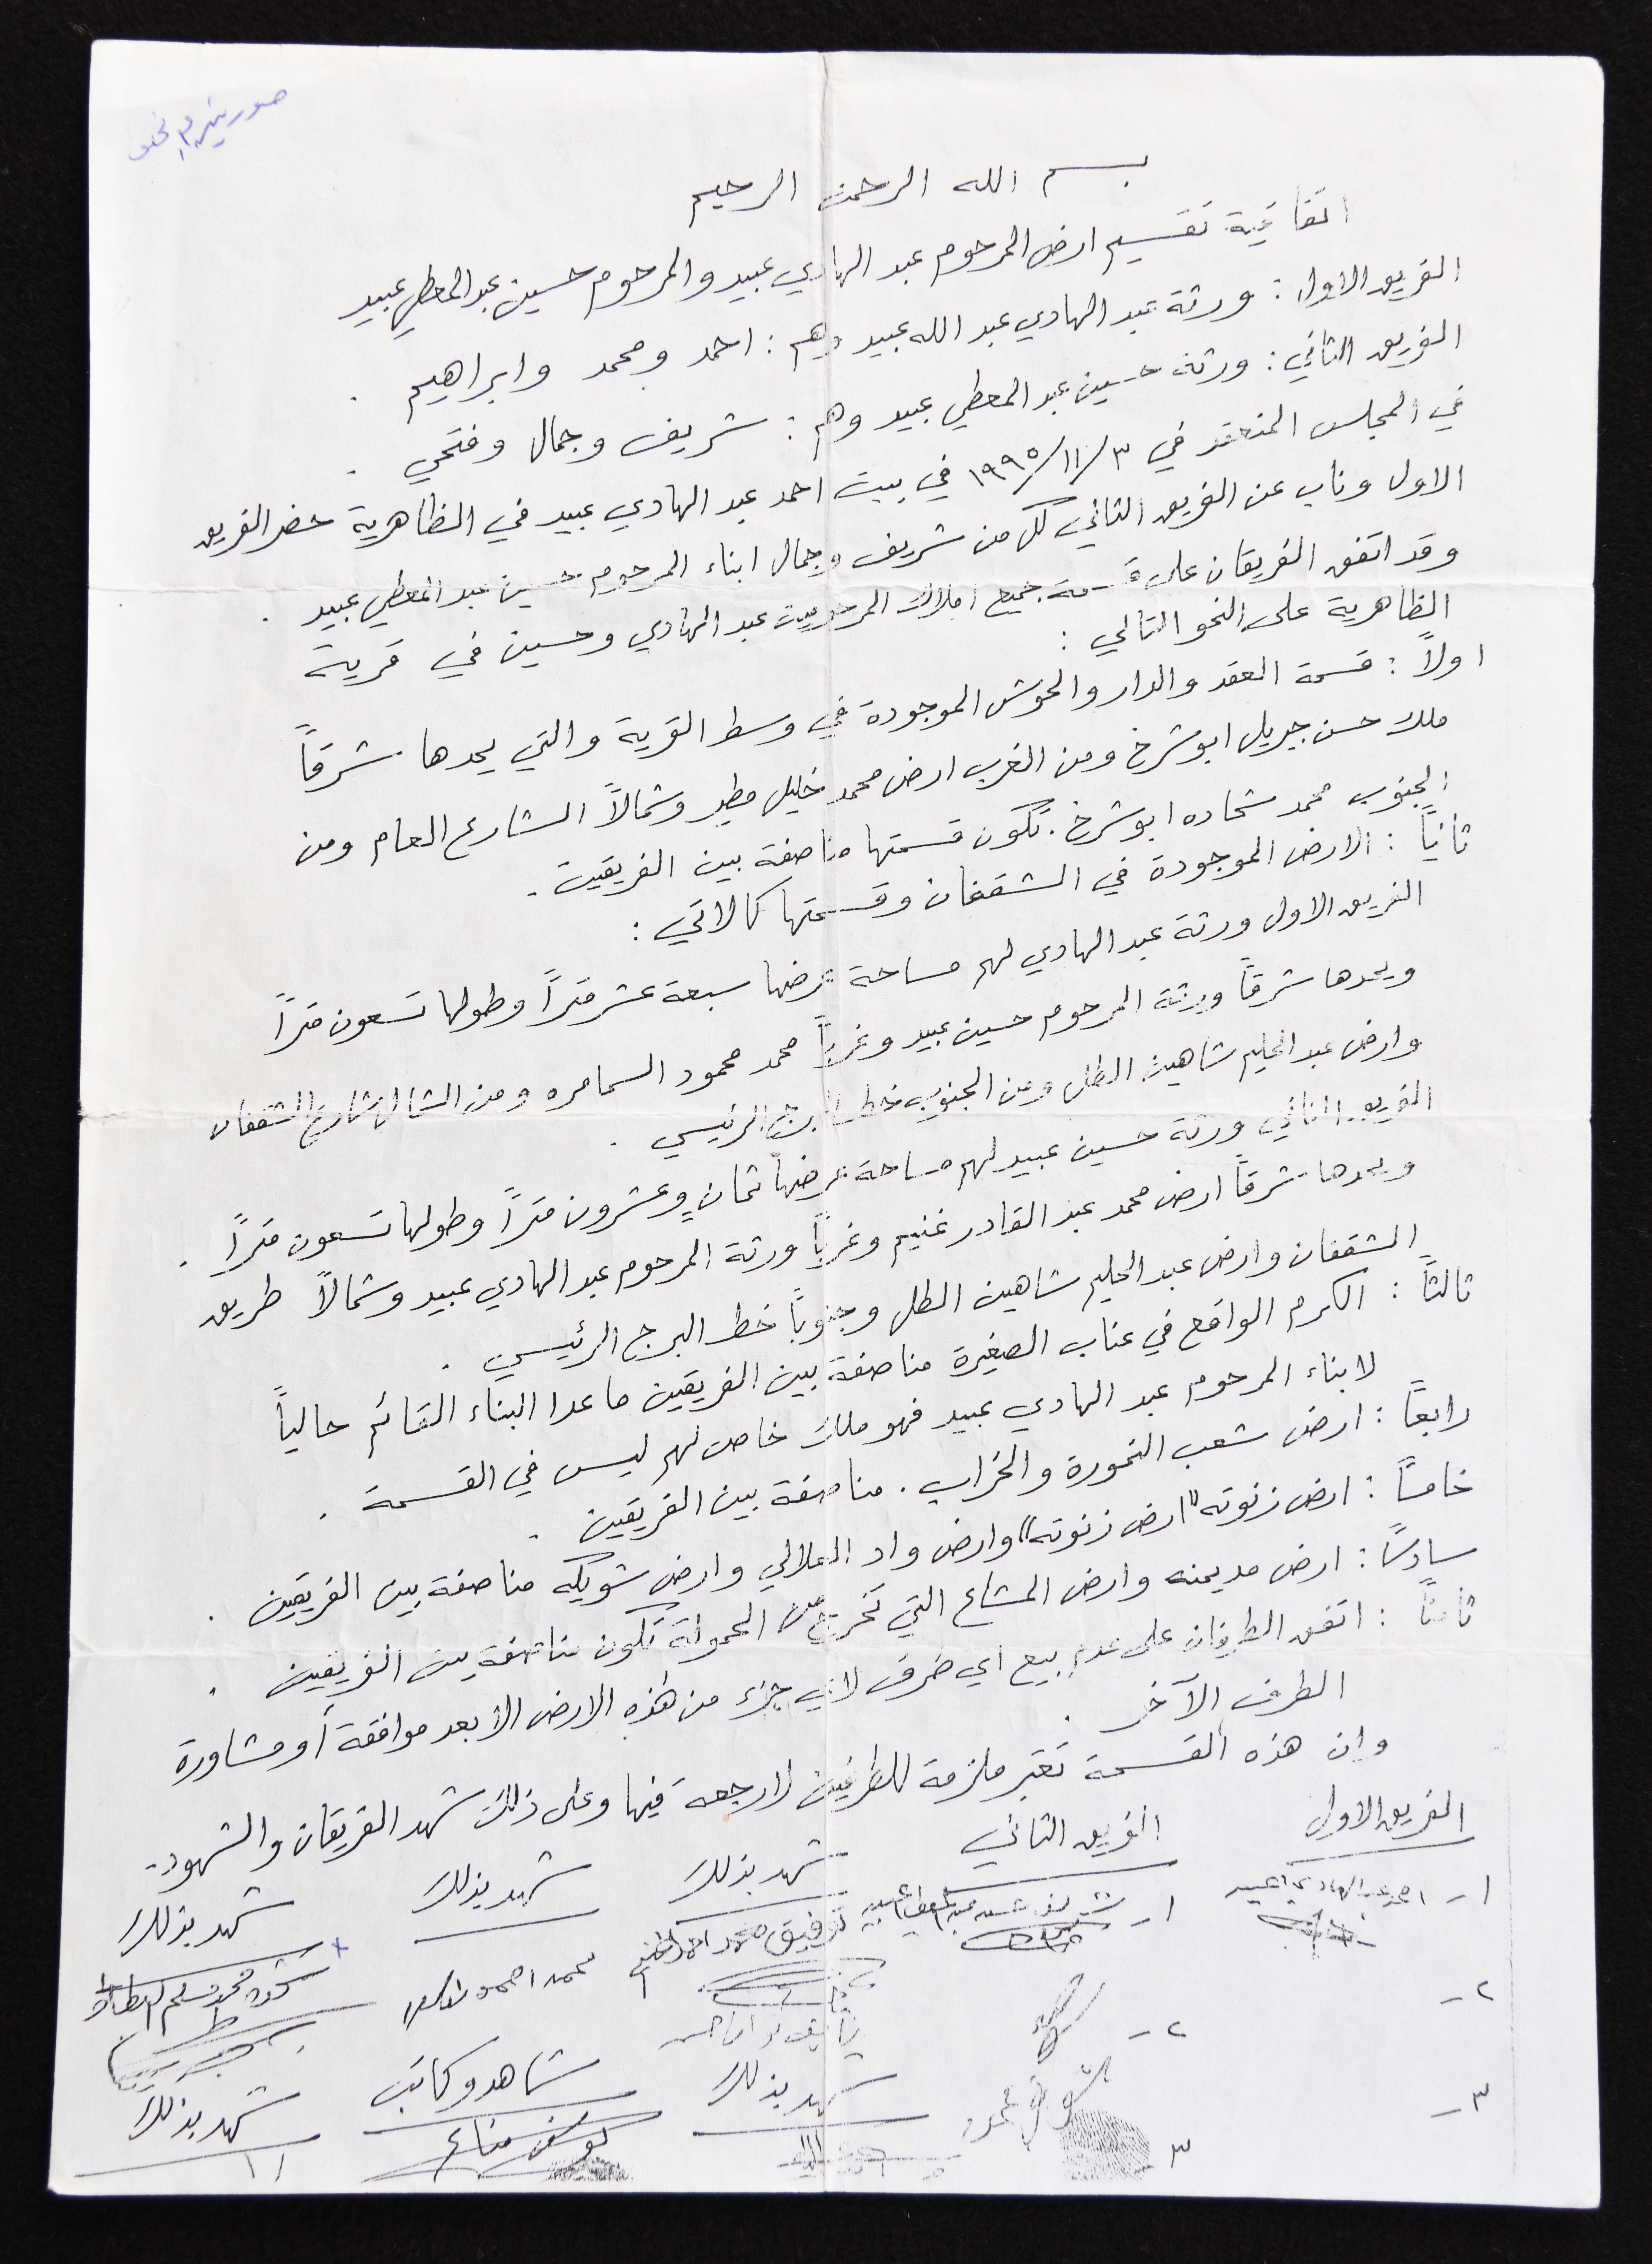 بسم الله الرحمن الرحيم
اتفاقية تقسيم ارض المرحوم عبد الهادي عبيد والمرحوم حسين عبد المعطي عبيد
الفريق الاول : ورثة عبد الهادي عبد الله عبيد وهم : احمد ومحمد وابراهيم .
الفريق الثاني : ورثة حسين عبد المعطي عبيد وهم : شريف وجمال وفتحي .
في المجلس المنعقد في ٣/١١/١٩٩٥ في بيت احمد عبد الهادي عبيد في الظاهرية حضر الفريق
الاول وناب عن الفريق الثاني كل من شريف وجمال ابناء المرحوم حسين عبد المعطي عبيد .
وقد اتفق الفريقان على قسمة جميع املاك المرحومين عبد الهادي وحسين في قرية
الظاهرية على النحو التالي :
اولاً : قسمة العقد والدار والحوش الموجودة في وسط القرية والتي يحدها شرقاً
ملك حسن جبريل ابو شرخ ومن الغرب ارض محمد خليل مطير وشمالاً الشارع العام ومن
الجنوب محمد شحاده ابو شرخ . تكون قسمتها مناصفة بين الفريقين .
ثانياً : الارض الموجودة في الشقفان وقسمتها كالاتي :
الفريق الاول ورثة عبد الهادي لهم مساحة عرضها سبعة عشر متراً وطولها تسعون متراً
ويحدها شرقاً ورثة المرحوم حسين عبيد وغرباً محمد محمود السمامره ومن الشمال شارع الشقفان
وارض عبد الحليم شاهين الطل ومن الجنوب خط البرج الرئيسي .
الفريق الثاني ورثة حسين عبيد لهم مساحة عرضها ثمانٍ وعشرون متراً وطولها تسعون متراً .
ويحدها شرقاً ارض محمد عبد القادر غنيم وغرباً ورثة المرحوم عبد الهادي عبيد وشمالاً طريق
الشقفان وارض عبد الحليم شاهين الطل وجنوباً خط البرج الرئيسي .
ثالثاً : الكرم الواقع في عناب الصغيرة مناصفة بين الفريقين ما عدا البناء القائم حالياً
لابناء المرحوم عبد الهادي عبيد فهو ملك خاص لهم ليس في القسمة .
رابعاً : ارض شعب النمورة والخراب . مناصفة بين الفريقين .
خامساً : ارض زنوته "ارض زنوته" وارض واد العلالي وارض شويكه مناصفة بين الفريقين .
سادساً : ارض مديمنه وارض المشاع التي تخرج من الحمولة تكون مناصفة بين الفريقين .
ثامناً : اتفق الطرفان على عدم بيع اي طرف لاي جزء من هذه الارض الا بعد موافقة أو مشاورة
الطرف الآخر .
وان هذه القسمة تعتبر ملزمة للطرفين لا رجعة فيها وعلى ذلك شهد الفريقان والشهود .
الفريق الاول الفريق الثاني شهد بذلك شهد بذلك شهد بذلك
١- احمد عبد الهادي عبيد
١- شريف حسين عبد المعطي عبيد
توفيق محمد احمد
محمد احمد
٢-
٢-
شهد بذلك شاهد وكاتب شهد بذلك
٣-
٣